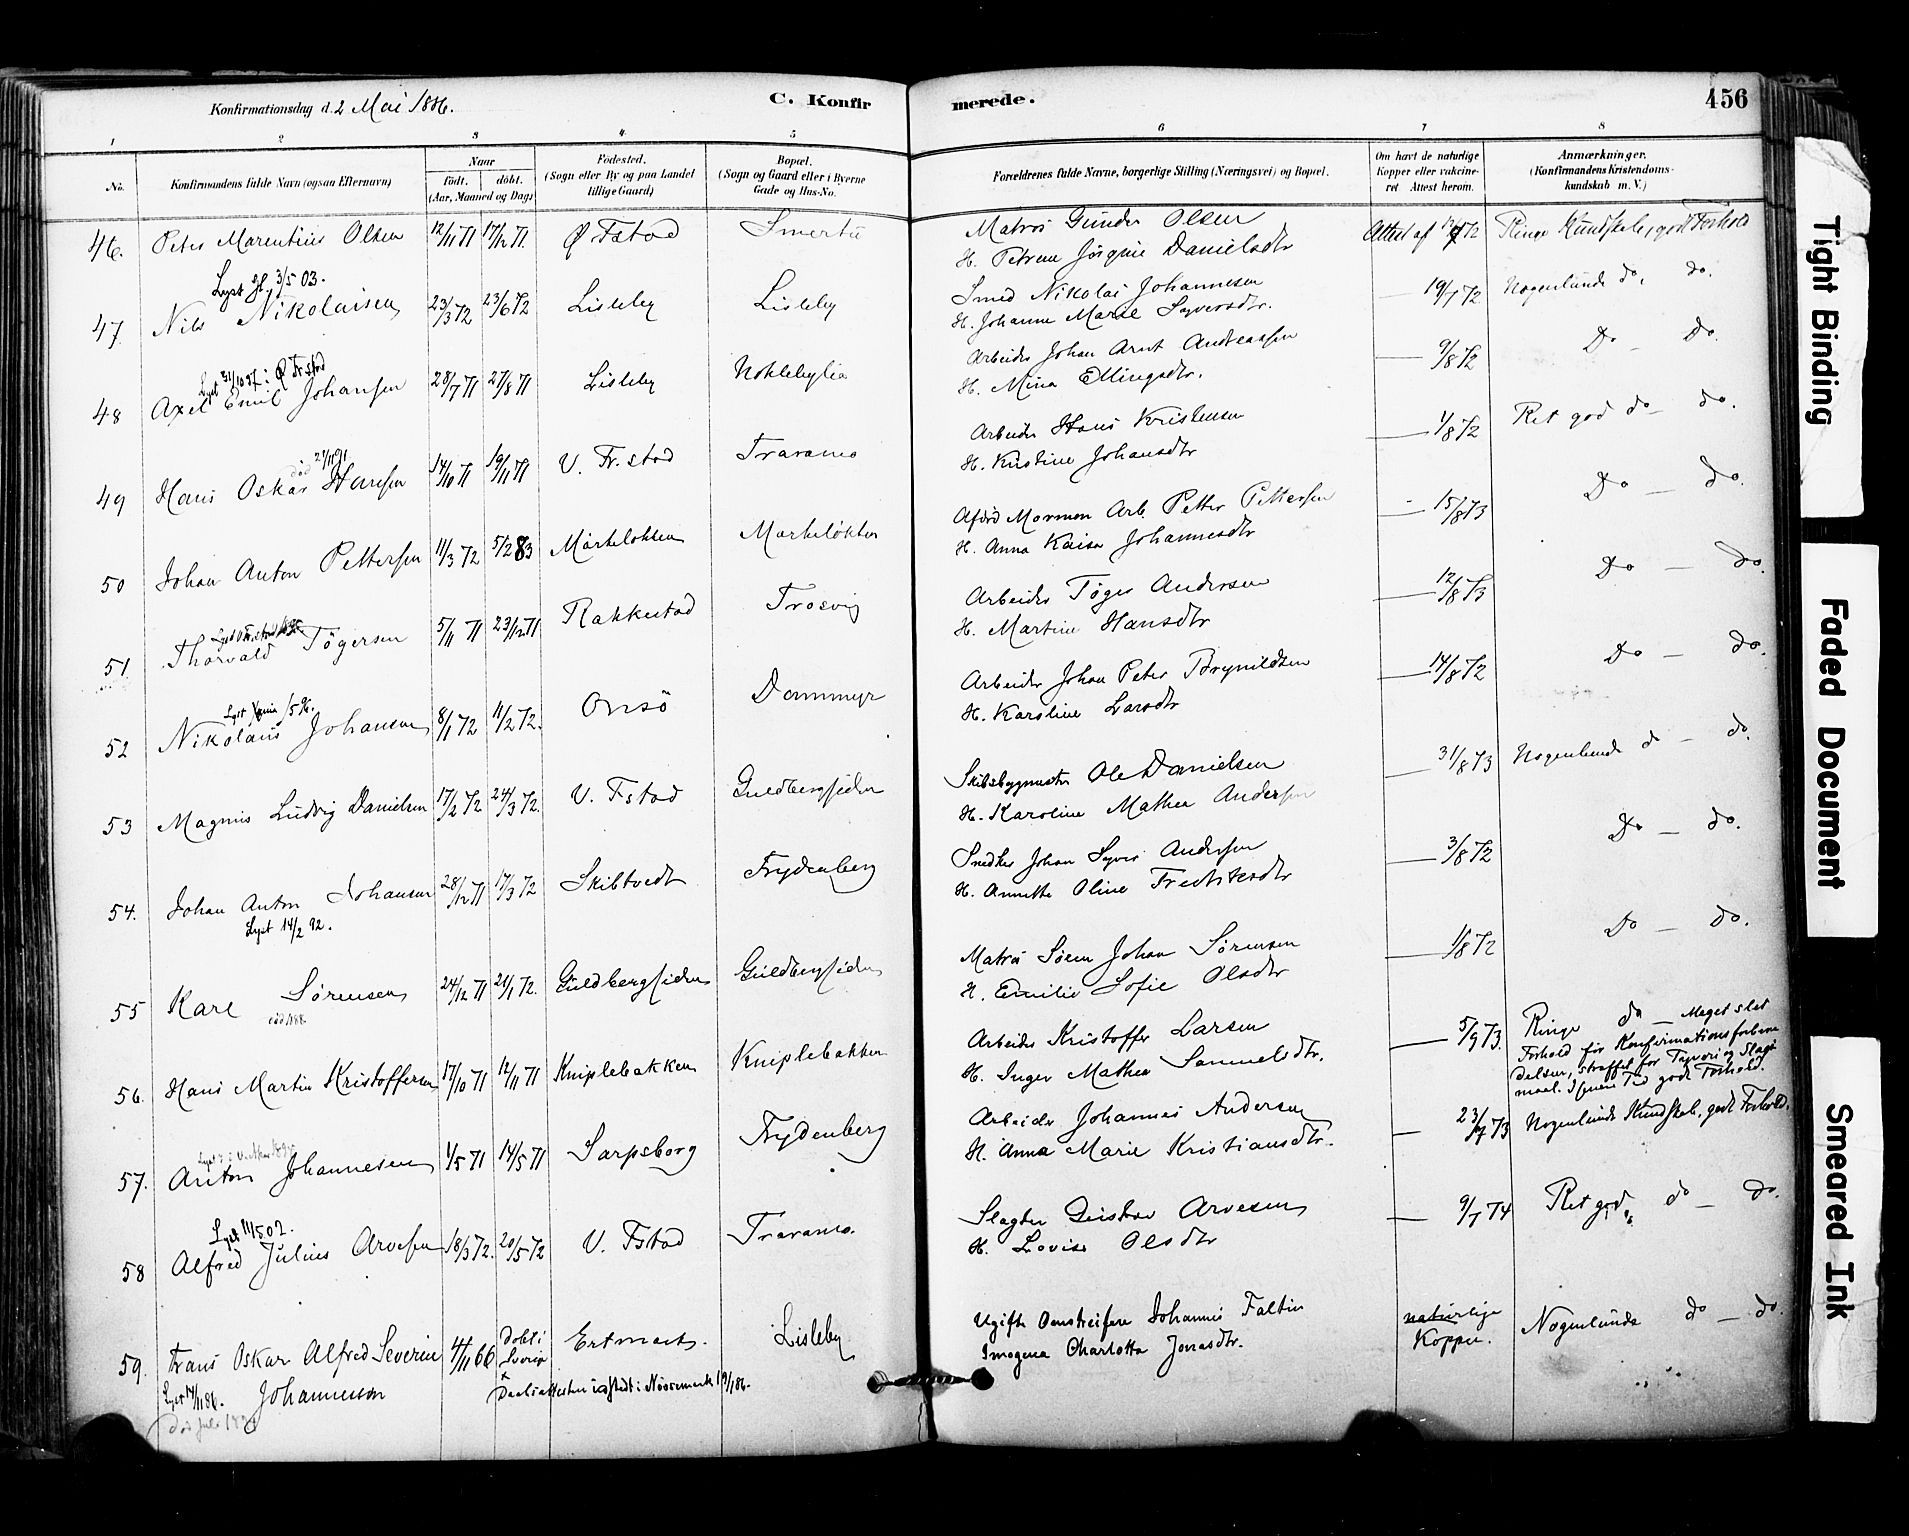 Konfirmationsdag d. 2 Mai 1886.
C. Konfirmerede.
456
1 2 3 4 5 6 7 8
No.
Konfirmandens fulde Navn (ogsaa Efternavn)
Naar
født. døbt.
(Aar, Maaned og Dag)
Fødested.
(Sogn eller By og paa Landet tillige Gaard)
Bopæl.
(Sogn og Gaard eller i Byerne Gade og Hus-No.
Forældrenes fulde Navne, borgerlige Stilling (Næringsvei) og Bopæl.
Om havt de naturlige Kopper eller vaccineret. Attest herom.
Anmærkninger.
(Konfirmandens Kristendomskundskab m. V.)
46. Peter Marentius Olsen 12/11 71 17/12 71. Ø. Fstad Smertu
Matros Gunder Olsen
H. Petrine Jørgine Danielsdtr
Attest af 72 Ringe Kundskab, godt Forhold
Lyst 3/5 03.
47 Nils Nikolaisen 23/3 72 23/6 72 Lisleby Lisleby
Smed Nikolai Johannesen
H. Johanne Marie Syversdtr.
19/7 72 Nogenlunde do, do.
Lyst 31/10 97 i Ø Fr.stad
48 Axel Emil Johansen 28/7 71 27/8 71 Lisleby Noklebylia
Arbeider Johan Arnt Andreassen
H. Mina Ellingsdtr.
9/8 72 Do — Do.
død
49 Hans Oskar Hansen 14/10 71 19/11 71 V. Fr.stad Traramo
Arbeider Hans Kristensen
H. Kristine Johansdtr
1/8 72 Ret god do — do.
50 Johan Anton Pettersen 11/3 72 5/2 83 Mørkeløkken Mørkeløkken
Afdød Mormon Arb. Petter Pettersen
H. Anna Kaisa Johannesdtr
15/8 73 Do — Do.
51 Thorvald Tøgersen 5/11 71 23/12 71 Rakkestad Trosvig
Arbeider Tøger Andersen
H. Martine Hansdtr
12/8 73 Do — Do.
Lyst 96.
52 Nikolaus Johansen 8/1 72 11/2 72. Onsø Dammyr
Arbeider Johan Peter Brynildsen
H. Karoline Larsdtr
14/8 72 Do — Do.
53 Magnus Ludvig Danielsen 17/2 72 24/3 72. V. Fstad Guldbergsiden
Skibsbygmester Ole Danielsen
H. Karoline Mathea Andersen
31/8 73 Nogenlunde do — do.
54. Johan Anton Johansen 28/12 71 17/3 72 Skibtvedt Frydenberg
Lyst 14/2 92.
Snedker Johan Syver Andersen
H. Annette Oline Fredriksdtr
3/8 72 Do — do.
55 Karl Sørensen 24/12 71 21/1 72. Guldbergsiden Guldbergsiden
Matros Søren Johan Sørensen
H. Emilie Sofie Olsdtr
1/8 72 Do — Do.
56. Hans Martin Kristoffersen 17/10 71 12/11 71 Kniplebakken Kniplebakken
Arbeider Kristoffer Larsen
H. Inger Mathea Samuelsdtr.
5/9 73. Ringe do — Meget slet
Forhold før Konfirmationsforbere
delsen, straffet for Tyveri og Slags
maal. I senere Tid godt Forhold.
57. Anton Johannesen 1/5 71 14/5 71 Sarpsborg Frydenberg
Arbeider Johannes Andersen
H. Anna Marie Kristiansdtr.
23/7 73 Nogenlunde Kundskab, godt Forhold.
Lyst 11/5 02.
58 Alfred Julius Arvesen 18/3 72. 20/5 72 V. Fstad Traramo.
Slagter Gustav Arvesen
H. Lovise Olsdtr
9/7 74 Ret god, do — Do.
59. Frans Oskar Alfred Severin 4/11 66 Døbt i Sverige Ertmark. Lisleby
Lyst 14/11 86. Johannesson Daabsattesten udstedt i Nøssemark 19/1 86.
Død Juli
Ugifte Omstreifere Johannes Faltin
Imogena Charlotta Jonasdtr.
naturlige
Kopper.
Nogenlunde do — do.
Tight Binding
Faded Document
Smeared Ink